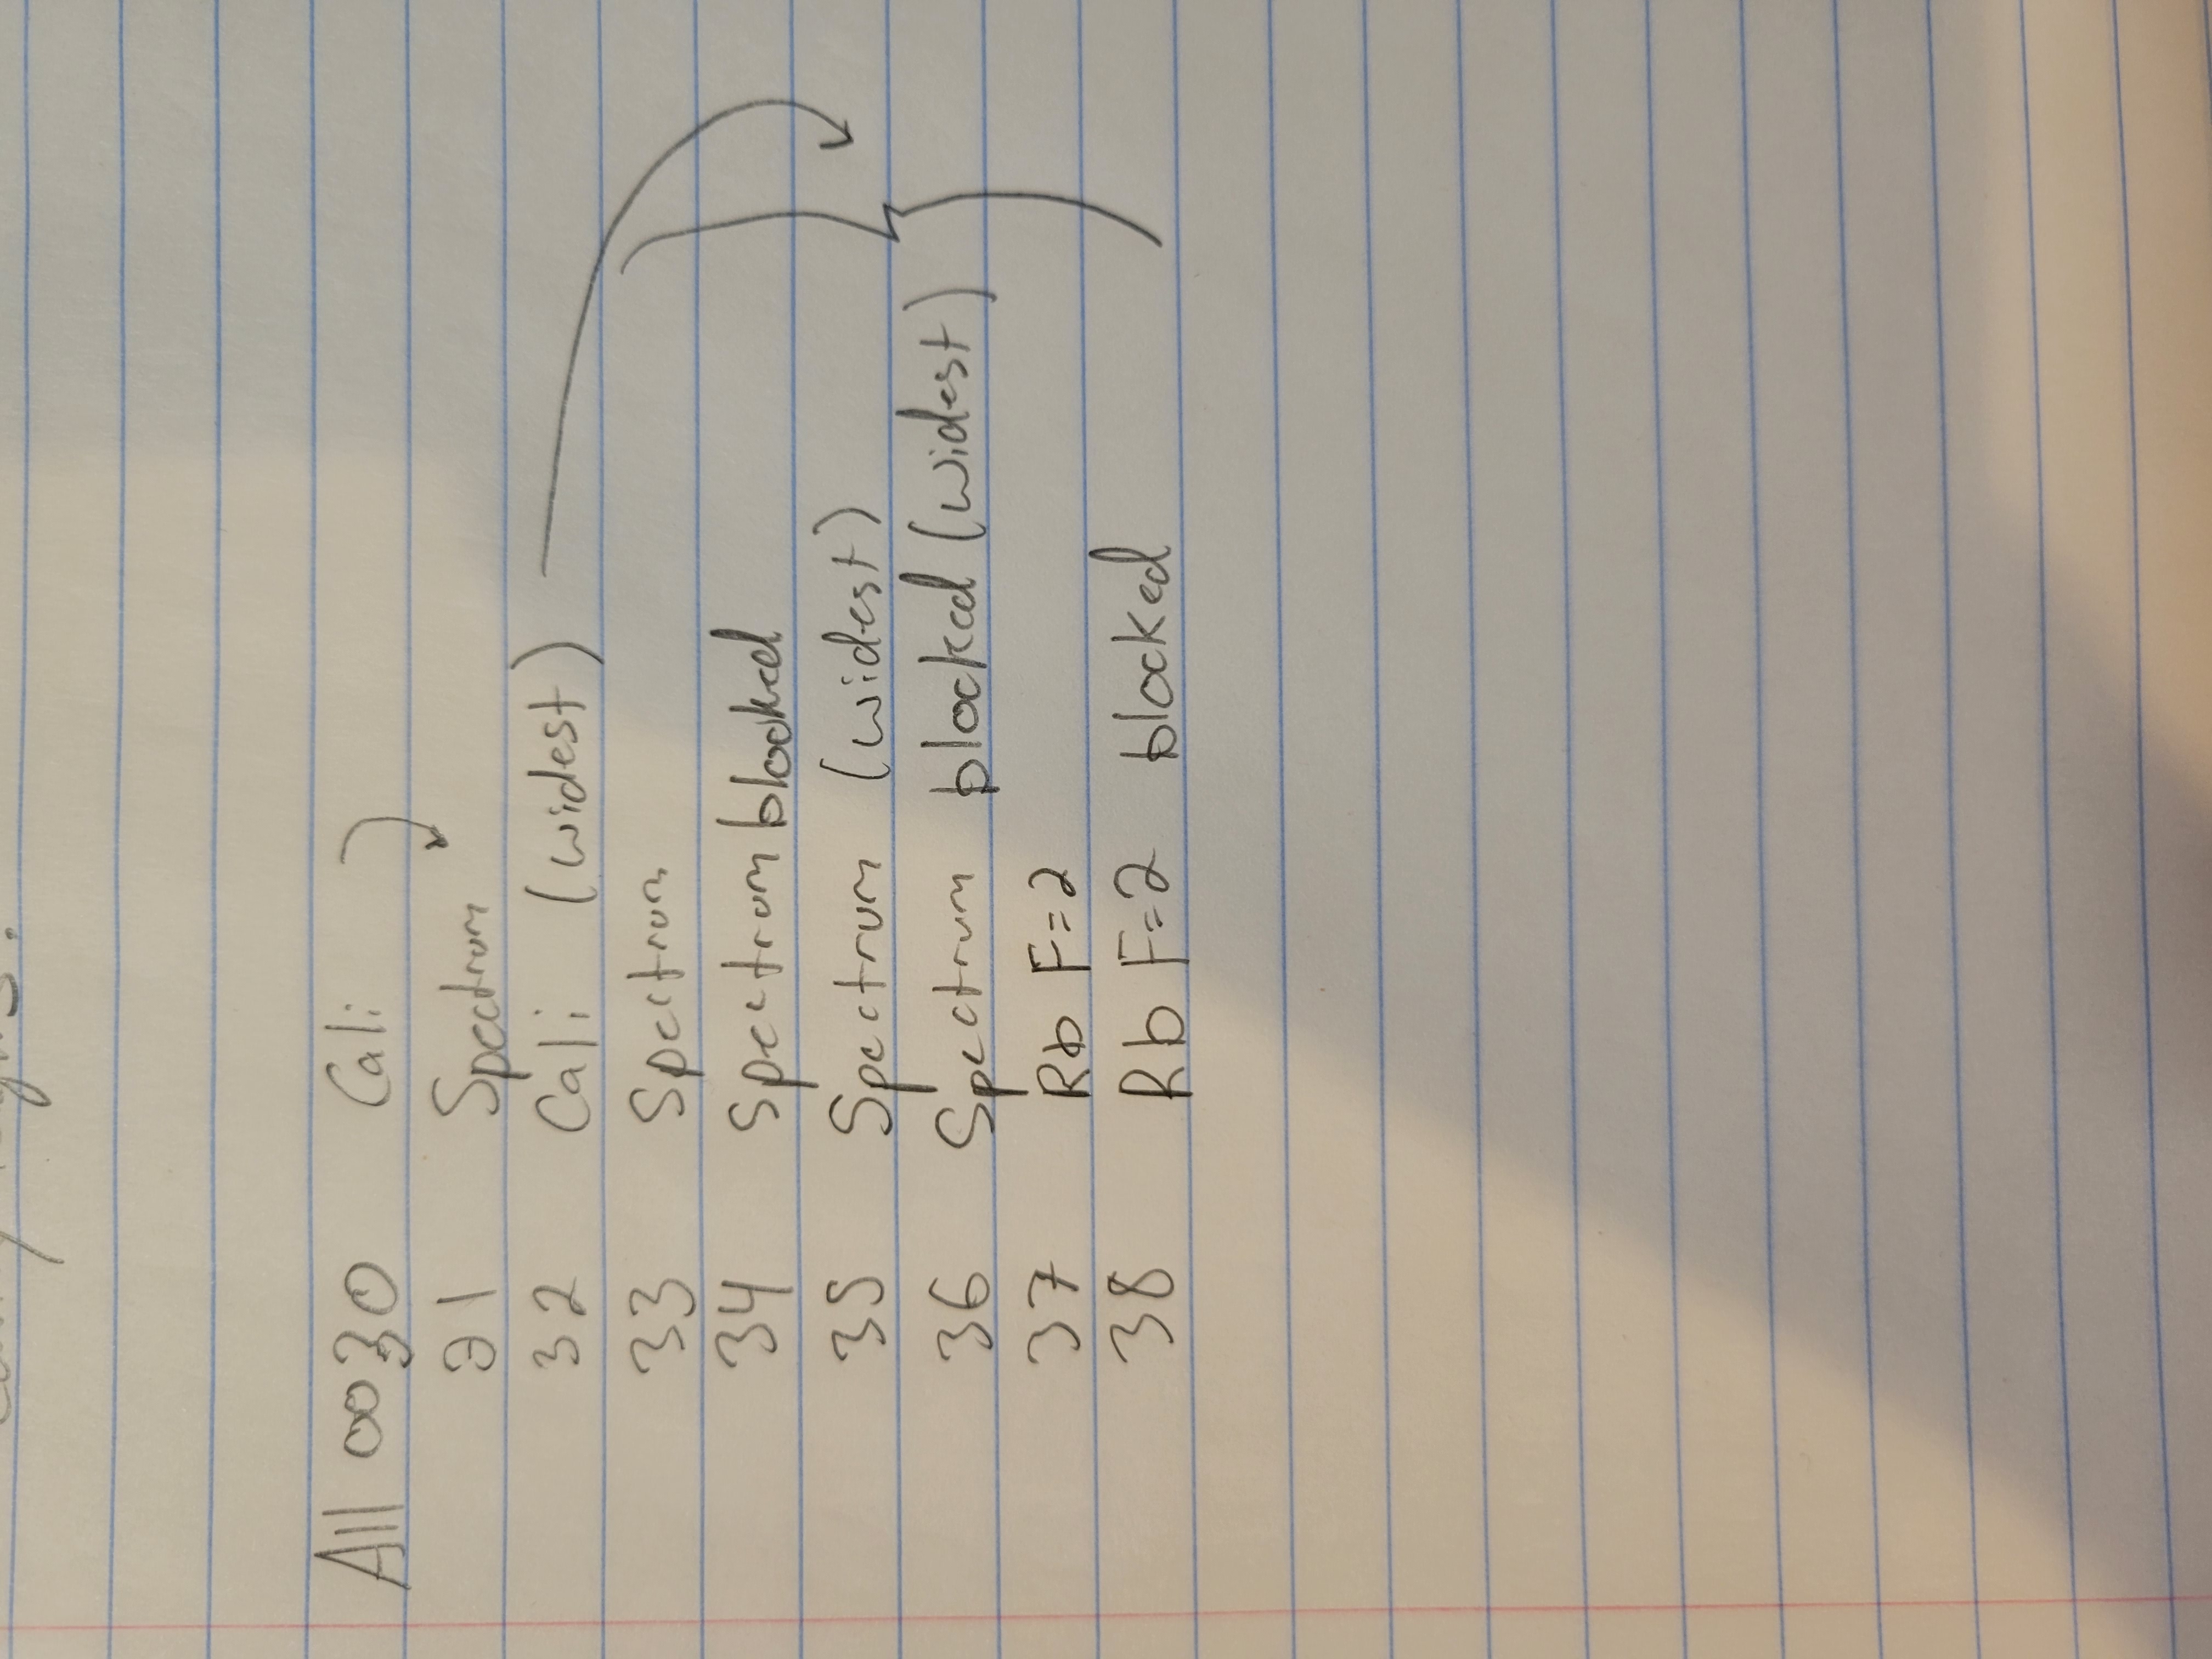 All 0030 Cali
31 Spectrum
32 Cali (widest)
33 Spectrum
34 Spectrum blocked
35 Spectrum (widest)
36 Spectrum blocked (widest)
37 Rb F=2
38 Rb F=2 blocked